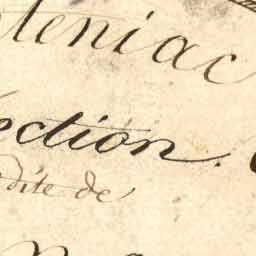 teniac
ection.
dite de